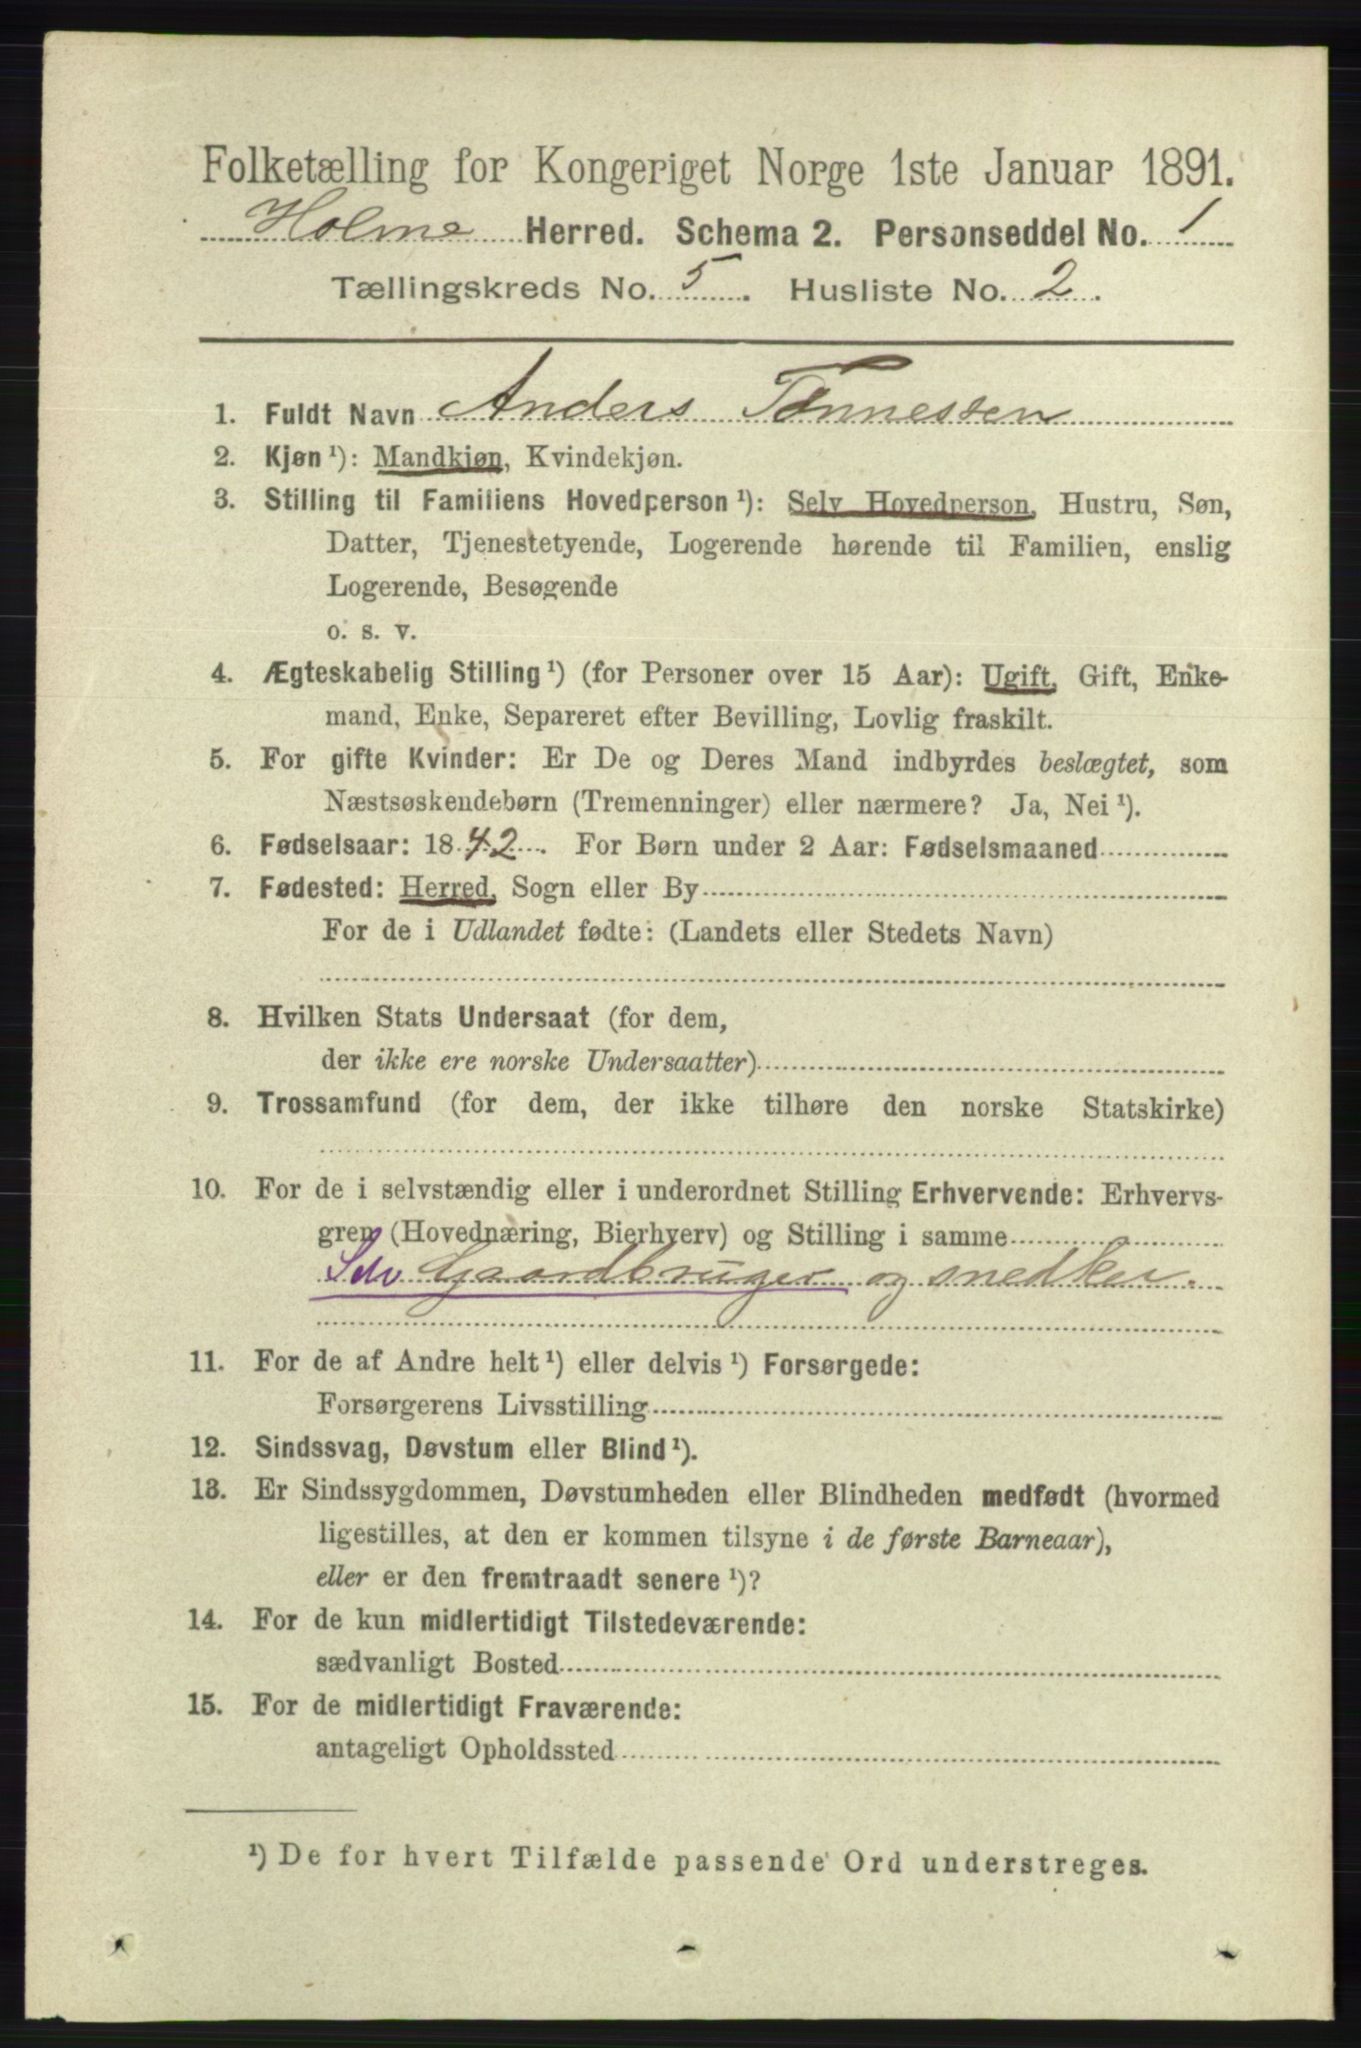 Folketælling for Kongeriget Norge 1ste Januar 1891.
Holme Herred. Schema 2. Personseddel No. 1
Tællingskreds No. 5. Husliste No. 2.
1. Fuldt Navn Anders Tønnessen
2. Kjøn ¹): Mandkjøn, Kvindekjøn.
3. Stilling til Familiens Hovedperson ¹): Selv Hovedperson, Hustru, Søn,
Datter, Tjenestetyende, Logerende hørende til Familien, enslig
Logerende, Besøgende
o. s. v.
4. Ægteskabelig Stilling ¹) (for Personer over 15 Aar): Ugift, Gift, Enke-
mand, Enke, Separeret efter Bevilling, Lovlig fraskilt.
5. For gifte Kvinder: Er De og Deres Mand indbyrdes beslægtet, som
Næstsøskendebørn (Tremenninger) eller nærmere? Ja, Nei ¹).
6. Fødselsaar: 1842. For Børn under 2 Aar: Fødselsmaaned
7. Fødested: Herred, Sogn eller By
For de i Udlandet fødte: (Landets eller Stedets Navn)
8. Hvilken Stats Undersaat (for dem,
der ikke ere norske Undersaatter)
9. Trossamfund (for dem, der ikke tilhøre den norske Statskirke)
10. For de i selvstændig eller i underordnet Stilling Erhvervende: Erhvervs-
gren (Hovednæring, Bierhverv) og Stilling i samme
Selv Gaardbruger og snedker.
11. For de af Andre helt ¹) eller delvis ¹) Forsørgede:
Forsørgerens Livsstilling
12. Sindssvag, Døvstum eller Blind ¹).
13. Er Sindssygdommen, Døvstumheden eller Blindheden medfødt (hvormed
ligestilles, at den er kommen tilsyne i de første Barneaar),
eller er den fremtraadt senere ¹)?
14. For de kun midlertidigt Tilstedeværende:
sædvanligt Bosted
15. For de midlertidigt Fraværende:
antageligt Opholdssted
¹) De for hvert Tilfælde passende Ord understreges.